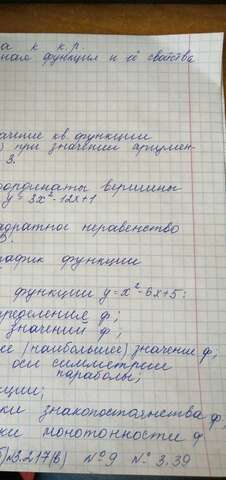 а к к.р.
ная функция и её свойства
ачение кв. функции
) при значении аргумен-
3.
ординаты вершины
y = 3x²-12x+1
адратное неравенство
рафик функции
функции y=x²-6x+5:
пределения ф;
значений ф;
ее (наибольшее) значение ф;
оси симметрии
параболы;
кции;
ки знакопостоянства ф;
ки монотонности ф.
)3.217(в) №9 № 3.39